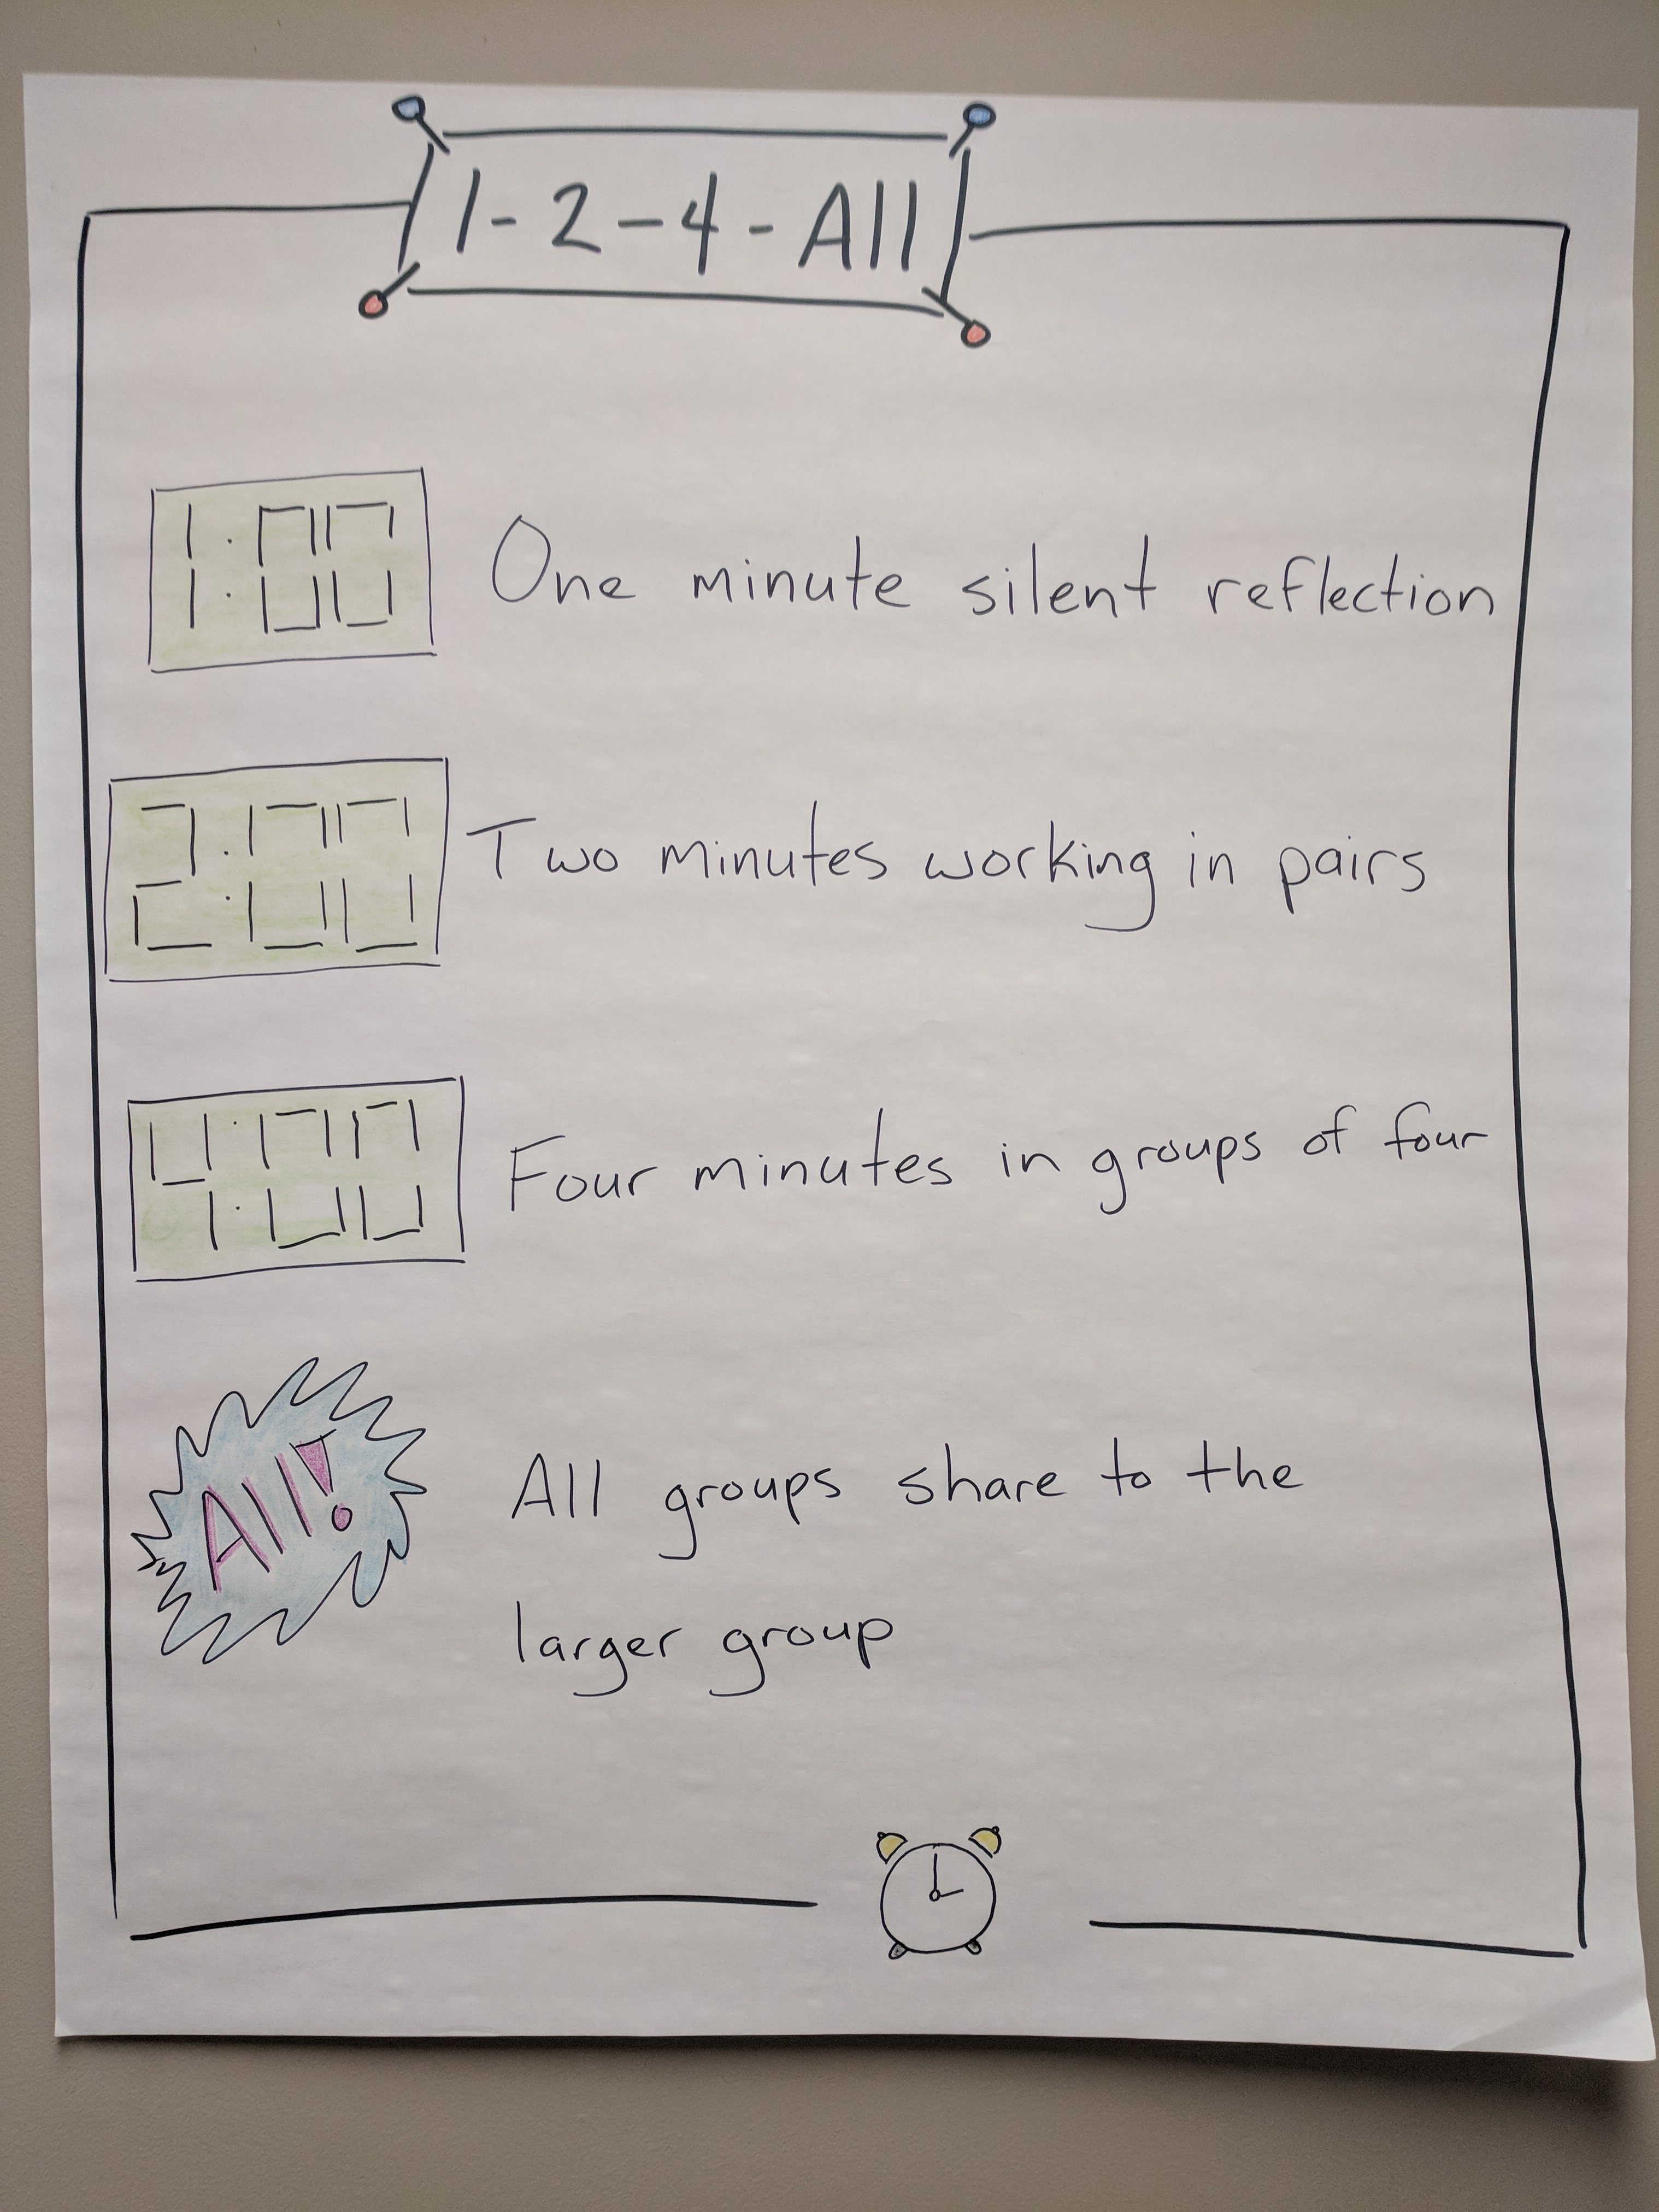 1-2-4-All
1:00 One minute silent reflection
2:00 Two minutes working in pairs
4:00 Four minutes in groups of four
All! All groups share to the
larger group